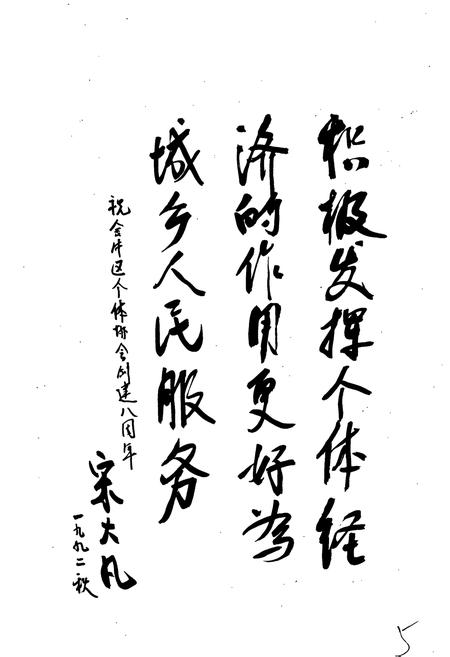 积极发挥个体经
济的作用更好为
城乡人民服务
祝会片区个体协会创建八周年
宋大凡
一九九二秋
5